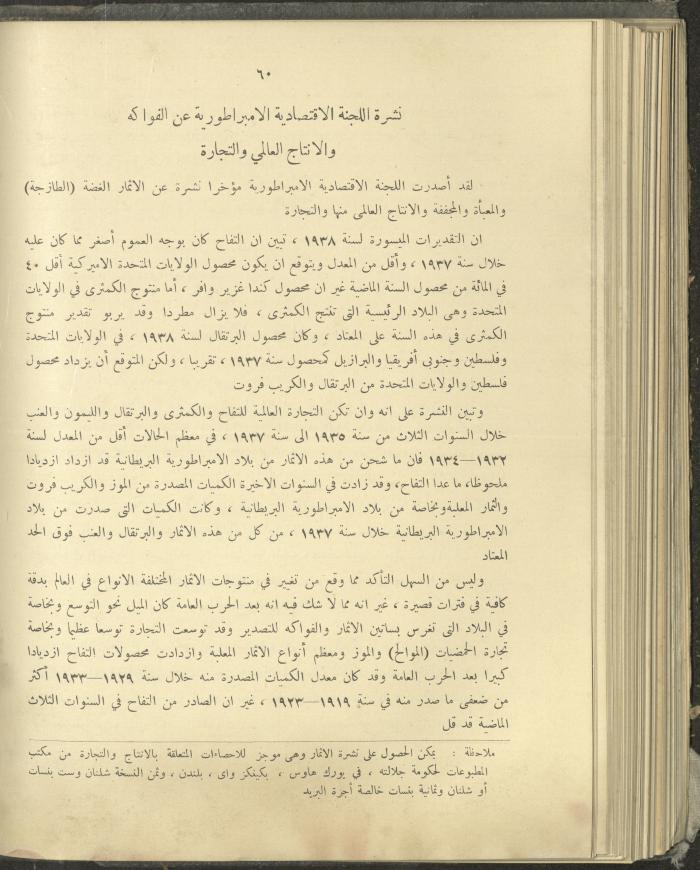 ٦٠
نشرة اللجنة الاقتصادية الامبراطورية عن الفواكه
والانتاج العالمي والتجارة
لقد أصدرت اللجنة الاقتصادية الامبراطورية مؤخرا نشرة عن الاثمار الغضة (الطازجة)
والمعبأة والمجففة والانتاج العالمى منها والتجارة
ان التقديرات الميسورة لسنة ١٩٣٨ ، تبين ان التفاح كان بوجه العموم أصغر مما كان عليه
خلال سنة ١٩٣٧ ، وأقل من المعدل ويتوقع ان يكون محصول الولايات المتحدة الاميركية أقل ٤٠
في المائة من محصول السنة الماضية غير ان محصول كندا غزير وافر ، أما منتوج الكمثرى في الولايات
المتحدة وهى البلاد الرئيسية التى تنتج الكمثرى ، فلا يزال مطردا وقد يربو تقدير منتوج
الكمثرى في هذه السنة على المعتاد ، وكان محصول البرتقال لسنة ١٩٣٨ ، في الولايات المتحدة
وفلسطين وجنوبى أفريقيا والبرازيل كمحصول سنة ١٩٣٧ ، تقريبا ، ولكن المتوقع أن يزداد محصول
فلسطين والولايات المتحدة من البرتقال والكريب فروت
وتبين النشرة على انه وان تكن التجارة العالمية للتفاح والكمثرى والبرتقال والليمون والعنب
خلال السنوات الثلاث من سنة ١٩٣٥ الى سنة ١٩٣٧ ، في معظم الحالات أقل من المعدل لسنة
١٩٣٢—١٩٣٤ فان ما شحن من هذه الاثمار من بلاد الامبراطورية البريطانية قد ازداد ازديادا
ملحوظا، ما عدا التفاح، وقد زادت في السنوات الاخيرة الكميات المصدرة من الموز والكريب فروت
والثمار المعلبة وبخاصة من بلاد الامبراطورية البريطانية ، وكانت الكميات التى صدرت من بلاد
الامبراطورية البريطانية خلال سنة ١٩٣٧ ، من كل من هذه الاثمار والبرتقال والعنب فوق الحد
المعتاد
وليس من السهل التأكد مما وقع من تغيير في منتوجات الاثمار المختلفة الانواع في العالم بدقة
كافية في فترات قصيرة ، غير انه مما لا شك فيه انه بعد الحرب العامة كان الميل نحو التوسع وبخاصة
في البلاد التى تغرس بساتين الاثمار والفواكه للتصدير وقد توسعت التجارة توسعا عظيما وبخاصة
تجارة الحمضيات (الموالح) والموز ومعظم أنواع الاثمار المعلبة وازدادت محصولات التفاح ازديادا
كبيرا بعد الحرب العامة وقد كان معدل الكميات المصدرة منه خلال سنة ١٩٢٩—١٩٣٣ أكثر
من ضعفى ما صدر منه في سنة ١٩١٩—١٩٢٣ ، غير ان الصادر من التفاح في السنوات الثلاث
الماضية قد قل
ملاحظة : يمكن الحصول على نشرة الاثمار وهى موجز للاحصاءات المتعلقة بالانتاج والتجارة من مكتب
المطبوعات لحكومة جلالته ، في يورك هاوس ، بكينكز واى ، بلندن ، وثمن النسخة شلنان وست بنسات
أو شلنان وثمانية بنسات خالصة أجرة البريد